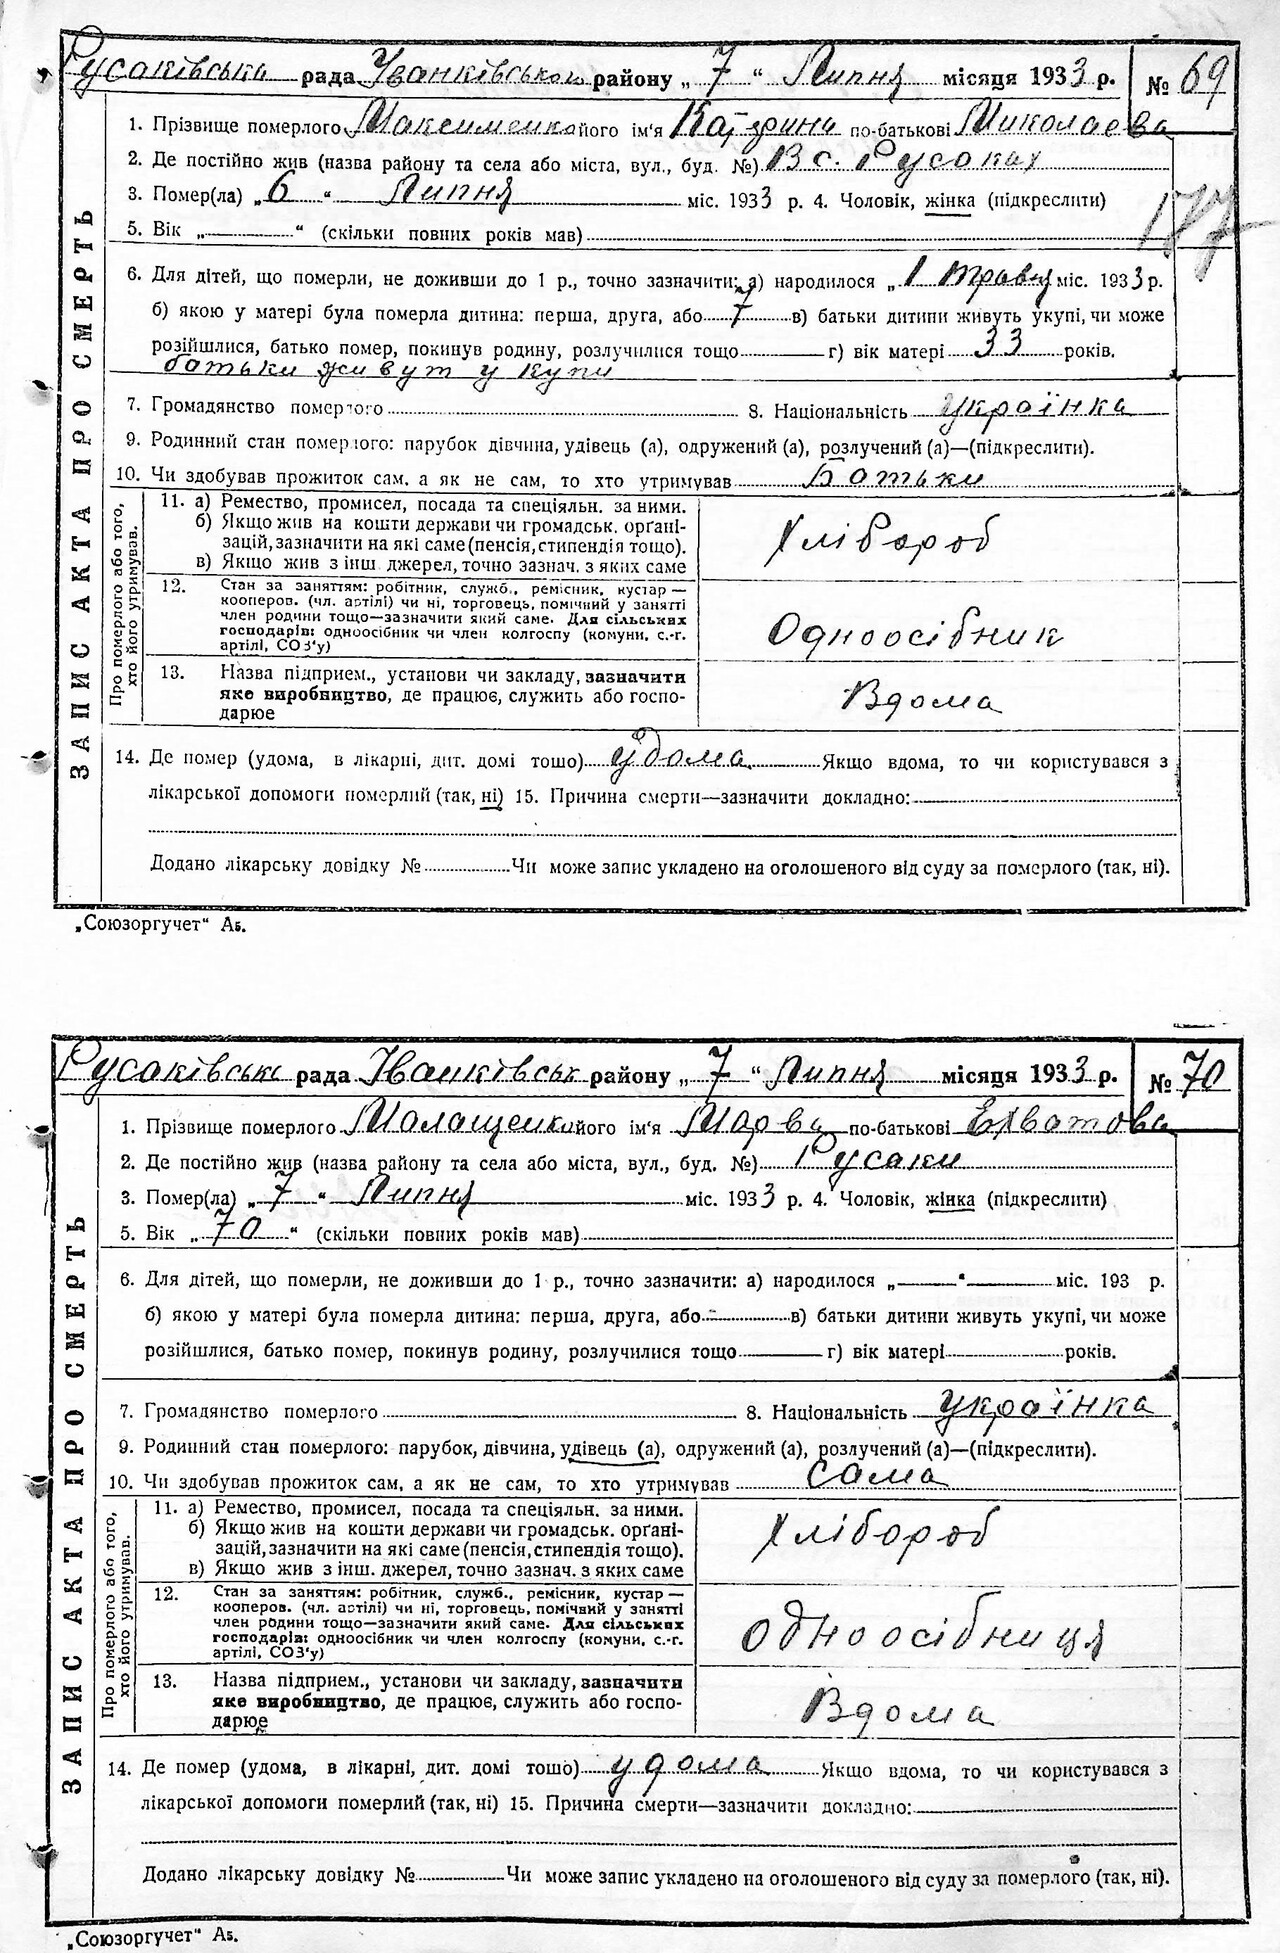 Русаківська рада Іванківського району „ 7 “ Липня місяця 1933 р. № 69
1. Прізвище померлого Максименко його ім'я Катерина по-батькові Миколаєва
2. Де постійно жив (назва району та села або міста, вул., буд. №) В с. Русаках
3. Помер(ла) „ 6 “ Липня міс. 1933 р. 4. Чоловік, жінка (підкреслити)
177
5. Вік „ “ (скільки повних років мав)
6. Для дітей, що померли, не доживши до 1 р., точно зазначити: а) народилося „ 1 травня міс. 1933 р.
б) якою у матері була померла дитина: перша, друга, або 7 в) батьки дитини живуть укупі, чи може
розійшлися, батько помер, покинув родину, розлучилися тощо г) вік матері 33 років.
батьки живут у купи
7. Громадянство померлого 8. Національність українка
9. Родинний стан померлого: парубок дівчина, удівець (а), одружений (а), розлучений (а)—(підкреслити).
10. Чи здобував прожиток сам, а як не сам, то хто утримував Батьки
ЗАПИС АКТА ПРО СМЕРТЬ
Про померлого або того, хто його утримував.
11. а) Ремество, промисел, посада та спеціяльн. за ними.
б) Якщо жив на кошти держави чи громадськ. орґані-
зацій, зазначити на які саме (пенсія, стипендія тощо).
в) Якщо жив з інш. джерел, точно зазнач. з яких саме
Хлібороб
12. Стан за заняттям: робітник, служб., ремісник, кустар—
кооперов. (чл. артілі) чи ні, торговець, помічний у занятті
член родини тощо—зазначити який саме. Для сільських
господарів: одноосібник чи член колгоспу (комуни, с.-г.
артілі, СОЗ'у)
Одноосібник
13. Назва підприєм., установи чи закладу, зазначити
яке виробництво, де працює, служить або госпо-
дарює
Вдома
14. Де помер (удома, в лікарні, дит. домі тощо) удома Якщо вдома, то чи користувався з
лікарської допомоги померлий (так, ні) 15. Причина смерти—зазначити докладно:
Додано лікарську довідку № Чи може запис укладено на оголошеного від суду за померлого (так, ні).
„Союзоргучет“ А5.
Русаківськ рада Іванківськ району „ 7 “ Липня місяця 1933 р. № 70
1. Прізвище померлого Малащенко його ім'я Марва по-батькові
2. Де постійно жив (назва району та села або міста, вул., буд. №) Русаки
3. Помер(ла) „ 7 “ Липня міс. 1933 р. 4. Чоловік, жінка (підкреслити)
5. Вік „ 70 “ (скільки повних років мав)
6. Для дітей, що померли, не доживши до 1 р., точно зазначити: а) народилося „ “ міс. 193 р.
б) якою у матері була померла дитина: перша, друга, або в) батьки дитини живуть укупі, чи може
розійшлися, батько помер, покинув родину, розлучилися тощо г) вік матері років.
7. Громадянство померлого 8. Національність українка
9. Родинний стан померлого: парубок, дівчина, удівець (а), одружений (а), розлучений (а)—(підкреслити).
10. Чи здобував прожиток сам, а як не сам, то хто утримував сама
ЗАПИС АКТА ПРО СМЕРТЬ
Про померлого або того, хто його утримував.
11. а) Ремество, промисел, посада та спеціяльн. за ними.
б) Якщо жив на кошти держави чи громадськ. орґані-
зацій, зазначити на які саме (пенсія, стипендія тощо).
в) Якщо жив з інш. джерел, точно зазнач. з яких саме
Хлібороб
12. Стан за заняттям: робітник, служб., ремісник, кустар—
кооперов. (чл. артілі) чи ні, торговець, помічний у занятті
член родини тощо—зазначити який саме. Для сільських
господарів: одноосібник чи член колгоспу (комуни, с.-г.
артілі, СОЗ'у)
одноосібниця
13. Назва підприєм., установи чи закладу, зазначити
яке виробництво, де працює, служить або госпо-
дарює
Вдома
14. Де помер (удома, в лікарні, дит. домі тощо) удома Якщо вдома, то чи користувався з
лікарської допомоги померлий (так, ні) 15. Причина смерти—зазначити докладно:
Додано лікарську довідку № Чи може запис укладено на оголошеного від суду за померлого (так, ні).
„Союзоргучет“ А5.